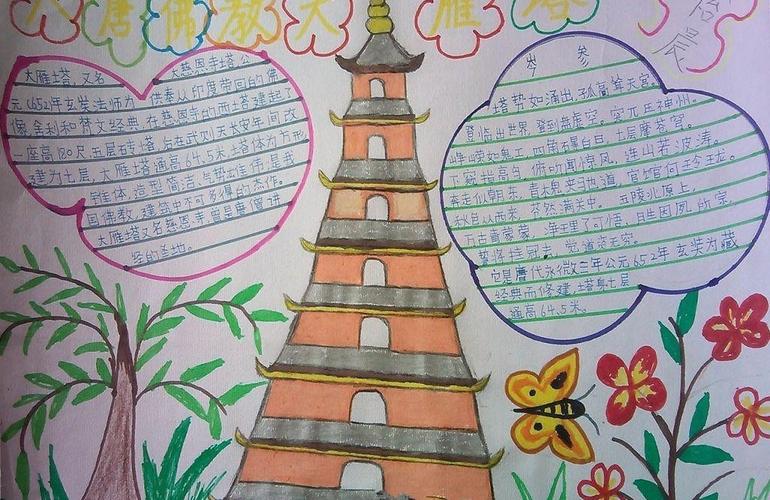 大唐佛教大雁塔
大雁塔，又名大慈恩寺塔公
元652年玄奘法师为供奉从印度带回的佛
像舍利和梵文经典，在慈恩寺的西塔建起了
一座高180尺五层砖塔，后在武则天长安年间改
建为七层，大雁塔通高64.5米塔体为方形
锥体，造型简洁，气势雄伟，是我
国佛教，建筑中不可多得的杰作，
大雁塔又名慈恩寺
经的圣地。
岑参
塔势如涌出，孤高耸天宫。
登临出世界，登到盘虚空。突兀压神州，
峥嵘如鬼工，四角碍白日，七层摩苍穹。
下窥指高鸟，俯听闻惊风。连山若波涛，
奔走似朝东，青
秋色从西来，苍然满关中。五陵北原上，
万古青蒙蒙。净理了可悟，
誓将挂冠去，觉道资无穷。
它是唐代永微三年公元652年玄奘为藏
经典而修建，塔身七层
通高64.5米。